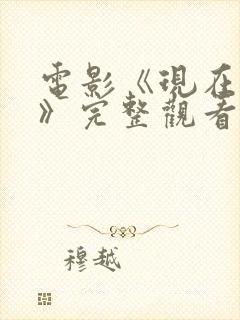 電影《現在
》完整觀看
穆越